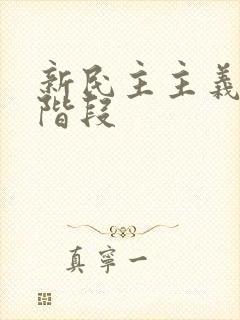 新民主主義
階段
真寧一